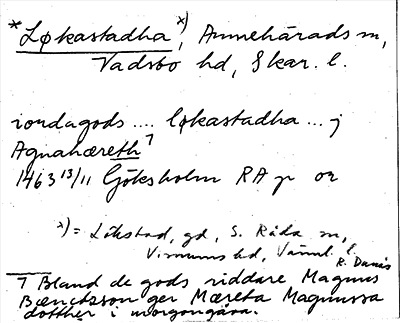 *Løkastadha x), Annehärads sn,
Vadsbo hd, Skar. l.
iordagods .... løkastadha ... j
Agnahæreth 7
1463 13/11 Göksholm RA p or
x) = Lökstad, gd, S. Råda sn,
Visnums hd, Värml. l.
R. Danis
7 Bland de gods riddare Magnus
Bænctsson ger Mæreta Magnussa
dotther i morgongåva.